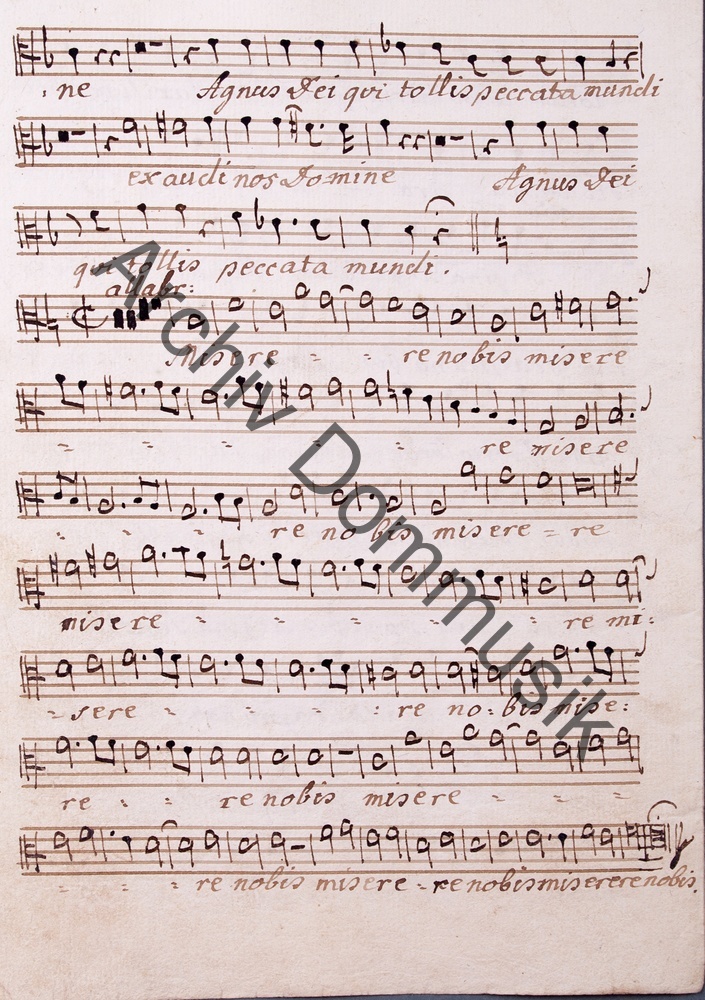 : ne Agnus Dei qui tollis peccata mundi
exaudi nos Domine Agnus Dei
qui tollis peccata mundi.
allabr:
Misere = = re nobis misere
= = = = = re misere
= = = re no bis misere = re
misere = = = = = re mi:
= sere = = = re no: bis mise:
re : : re nobis misere = = =
= = = re nobis misere - re nobis miserere nobis.
Archiv Dommusik